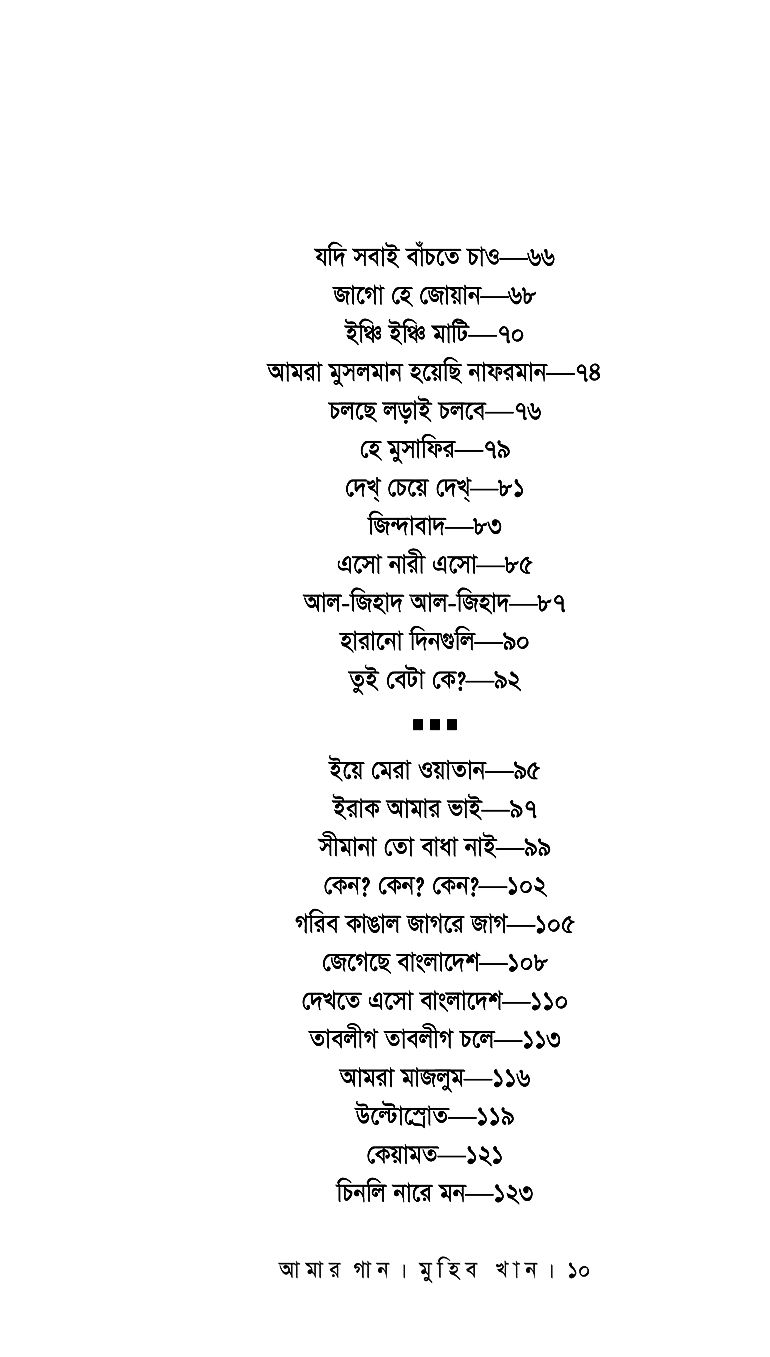 যদি সবাই বাঁচতে চাও—৬৬
জাগো হে জোয়ান—৬৮
ইঞ্চি ইঞ্চি মাটি—৭০
আমরা মুসলমান হয়েছি নাফরমান—৭৪
চলছে লড়াই চলবে—৭৬
হে মুসাফির—৭৯
দেখ্ চেয়ে দেখ্—৮১
জিন্দাবাদ—৮৩
এসো নারী এসো—৮৫
আল-জিহাদ আল-জিহাদ—৮৭
হারানো দিনগুলি—৯০
তুই বেটা কে?—৯২
■ ■ ■
ইয়ে মেরা ওয়াতান—৯৫
ইরাক আমার ভাই—৯৭
সীমানা তো বাধা নাই—৯৯
কেন? কেন? কেন?—১০২
গরিব কাঙাল জাগরে জাগ—১০৫
জেগেছে বাংলাদেশ—১০৮
দেখতে এসো বাংলাদেশ—১১০
তাবলীগ তাবলীগ চলে—১১৩
আমরা মাজলুম—১১৬
উল্টোস্রোত—১১৯
কেয়ামত—১২১
চিনলি নারে মন—১২৩
আমার গান । মুহিব খান । ১০